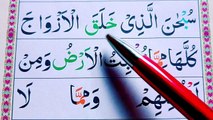 سُبْحٰنَ الَّذِيْ خَلَقَ الْاَزْوَاجَ
كُلَّهَا مِمَّا تُنْۢبِتُ الْاَرْضُ وَمِنْ
وَمِمَّا لَا